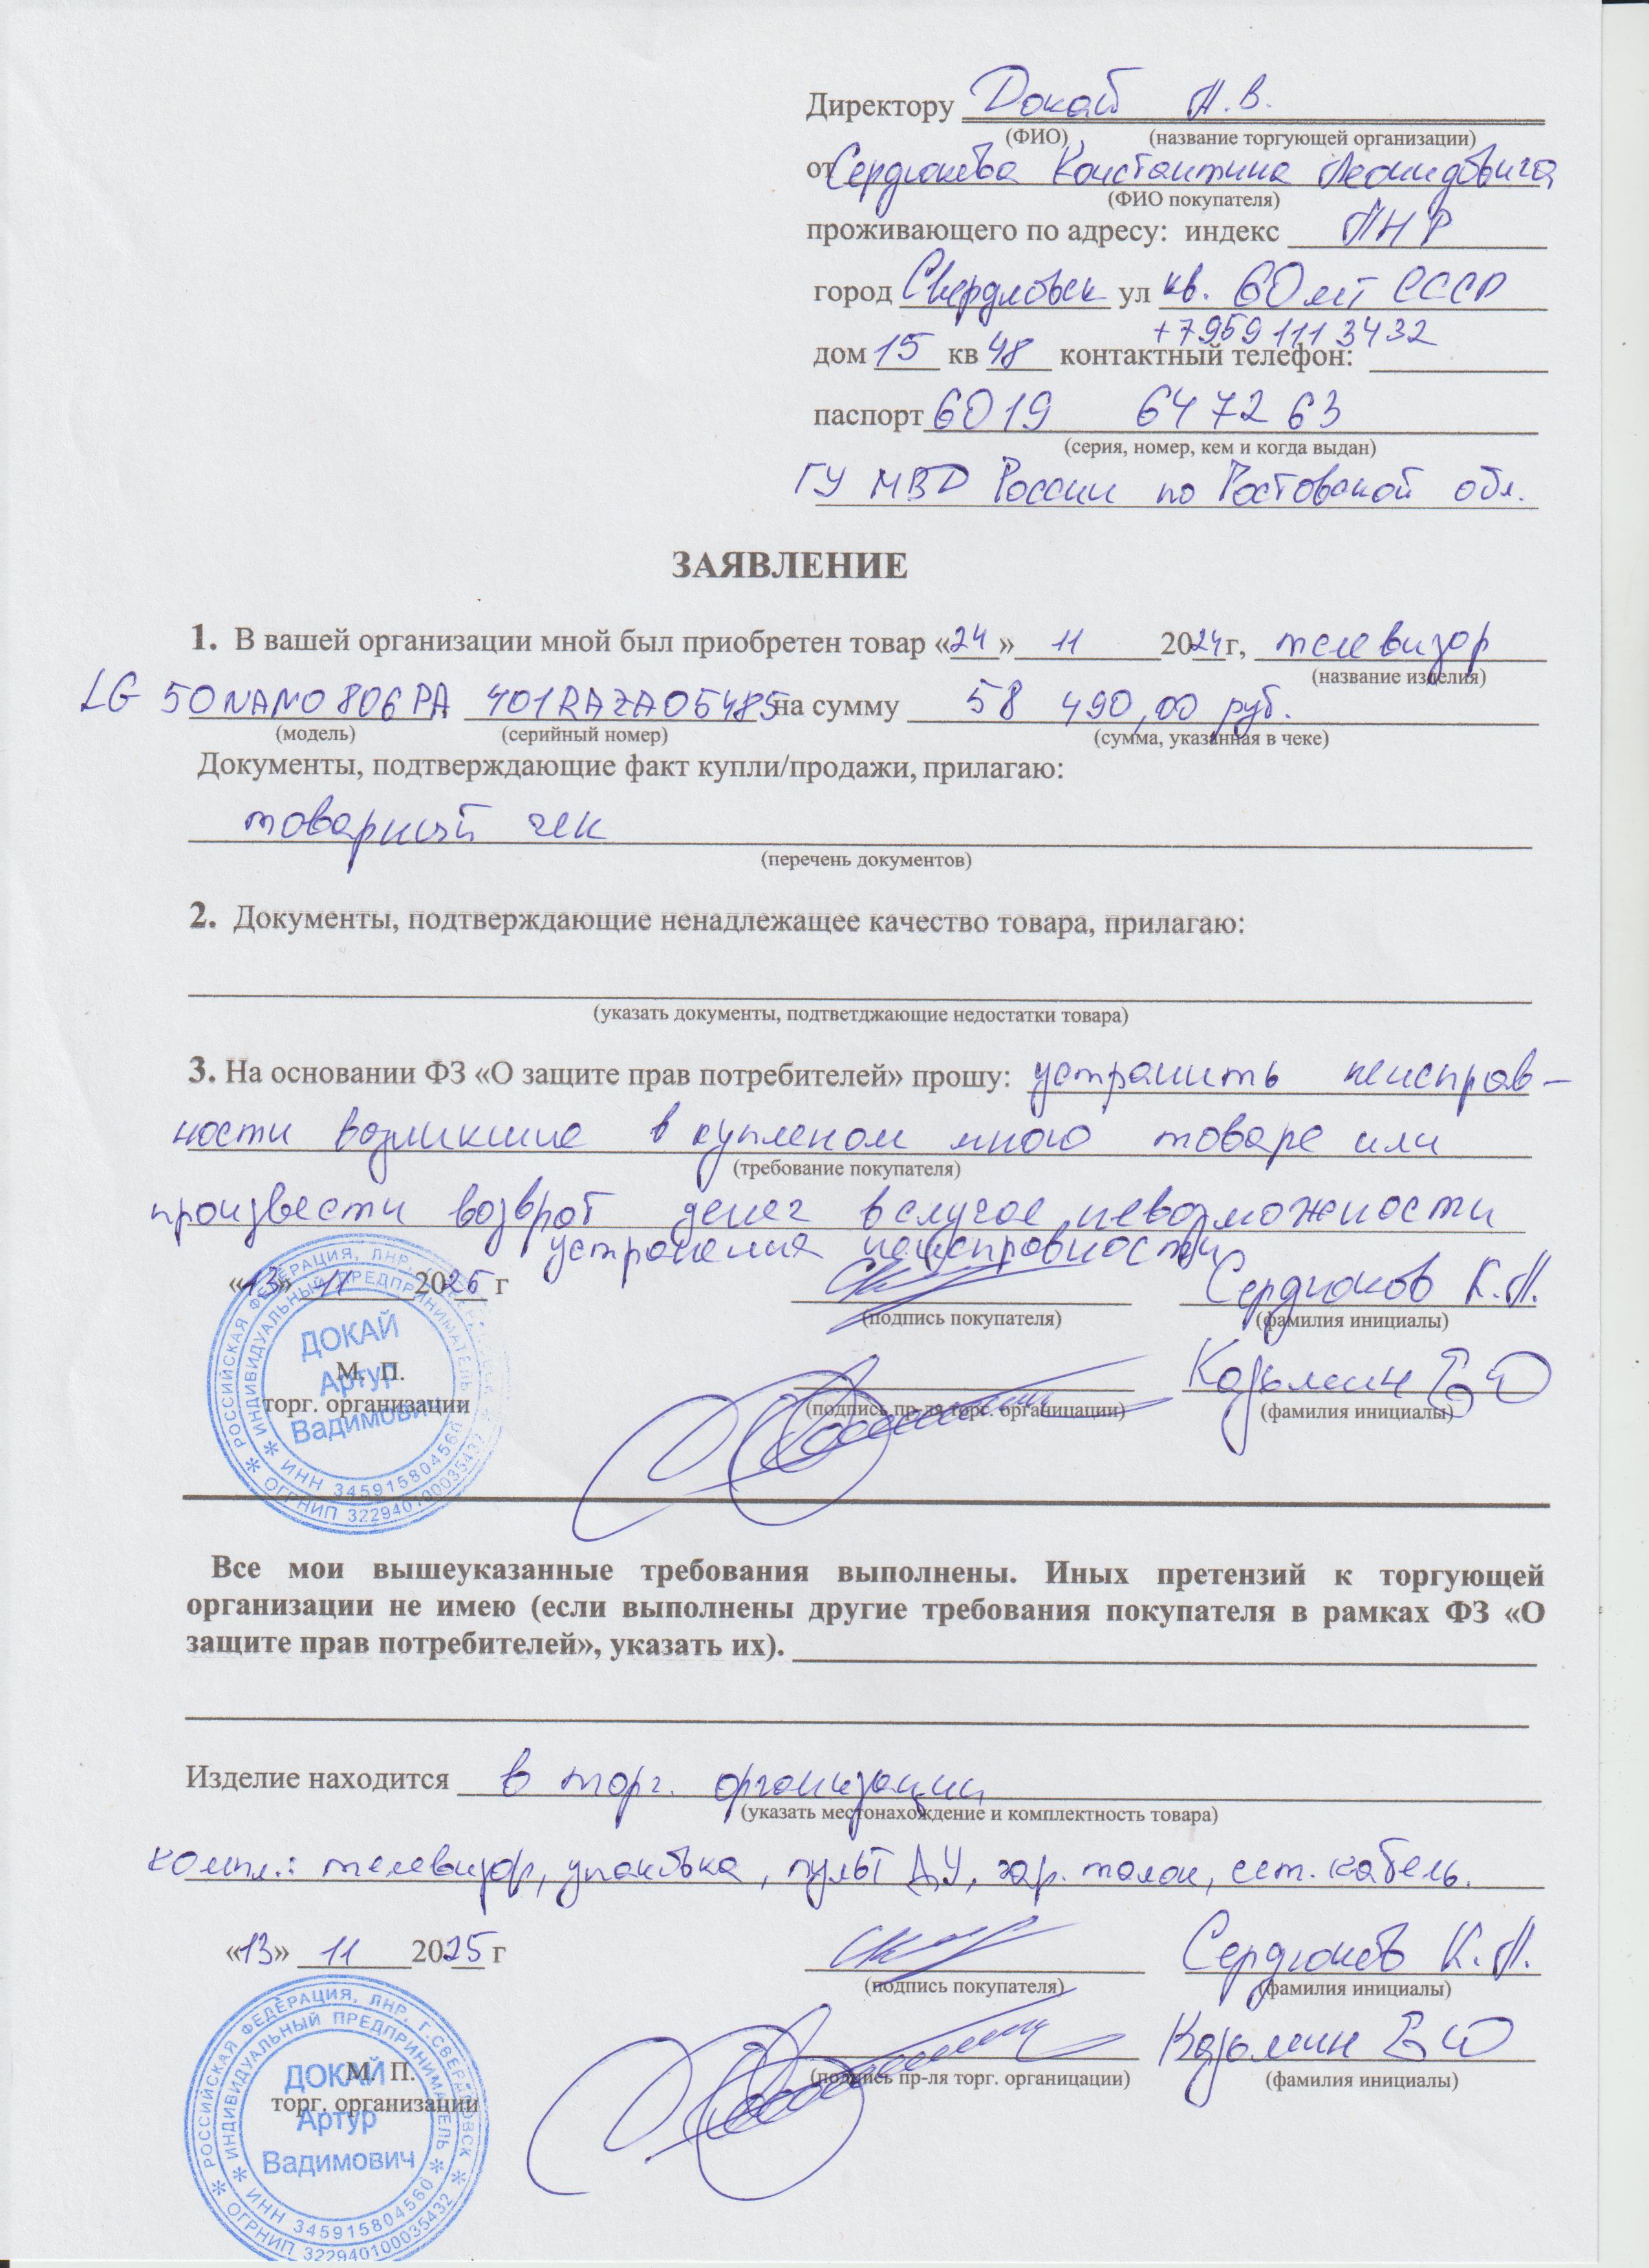 Директору Докай А.В.
(ФИО) (название торгующей организации)
от Сердюкова Константина Леонидовича
(ФИО покупателя)
проживающего по адресу: индекс ЛНР
город Свердловск ул кв. 60 лет СССР
+7 959 111 3432
дом 15 кв 48 контактный телефон:
паспорт 6019 647263
(серия, номер, кем и когда выдан)
ГУ МВД России по Ростовской обл.
ЗАЯВЛЕНИЕ
1. В вашей организации мной был приобретен товар «24» 11 2024г, телевизор
(название изделия)
LG 50NANO806PA 401RAZA05485 на сумму 58 490,00 руб.
(модель) (серийный номер) (сумма, указанная в чеке)
Документы, подтверждающие факт купли/продажи, прилагаю:
товарный чек
(перечень документов)
2. Документы, подтверждающие ненадлежащее качество товара, прилагаю:
(указать документы, подтветджающие недостатки товара)
3. На основании ФЗ «О защите прав потребителей» прошу: устранить неисправ-
ности возникшие в купленом мною товаре или
(требование покупателя)
произвести возврат денег в случае невозможности
устранения неисправности
«13» 11 2025 г
(подпись покупателя) Сердюков К.Л.
(фамилия инициалы)
М. П.
торг. организации
(подпись пр-ля торг. органицации) Козьмин
(фамилия инициалы)
РОССИЙСКАЯ ФЕДЕРАЦИЯ, ЛНР,
ИНДИВИДУАЛЬНЫЙ ПРЕДПРИНИМАТЕЛЬ
ДОКАЙ
Артур
Вадимович
ИНН 345915804560
ОГРНИП 322940100035432
Все мои вышеуказанные требования выполнены. Иных претензий к торгующей
организации не имею (если выполнены другие требования покупателя в рамках ФЗ «О
защите прав потребителей», указать их).
Изделие находится в торг. организации
(указать местонахождение и комплектность товара)
компл.: телевизор, упаковка, пульт ДУ, гар. талон, сет. кабель.
«13» 11 2025 г
(подпись покупателя) Сердюков К.Л.
(фамилия инициалы)
М. П.
торг. организации
(подпись пр-ля торг. органицации) Козьмин
(фамилия инициалы)
РОССИЙСКАЯ ФЕДЕРАЦИЯ, ЛНР, Г.СВЕРДЛОВСК
ИНДИВИДУАЛЬНЫЙ ПРЕДПРИНИМАТЕЛЬ
ДОКАЙ
Артур
Вадимович
ИНН 345915804560
ОГРНИП 322940100035432